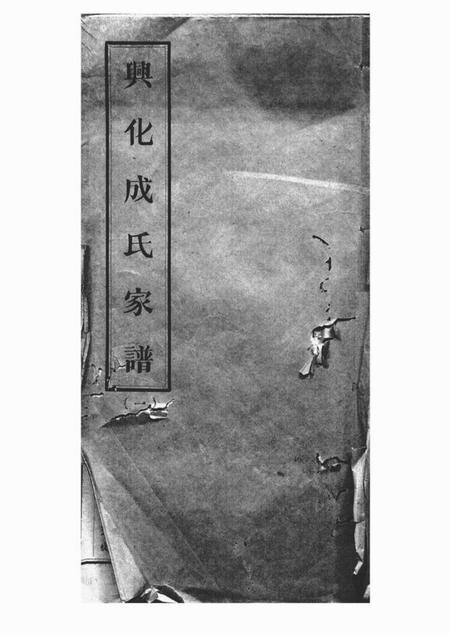 興化成氏家譜
(一)